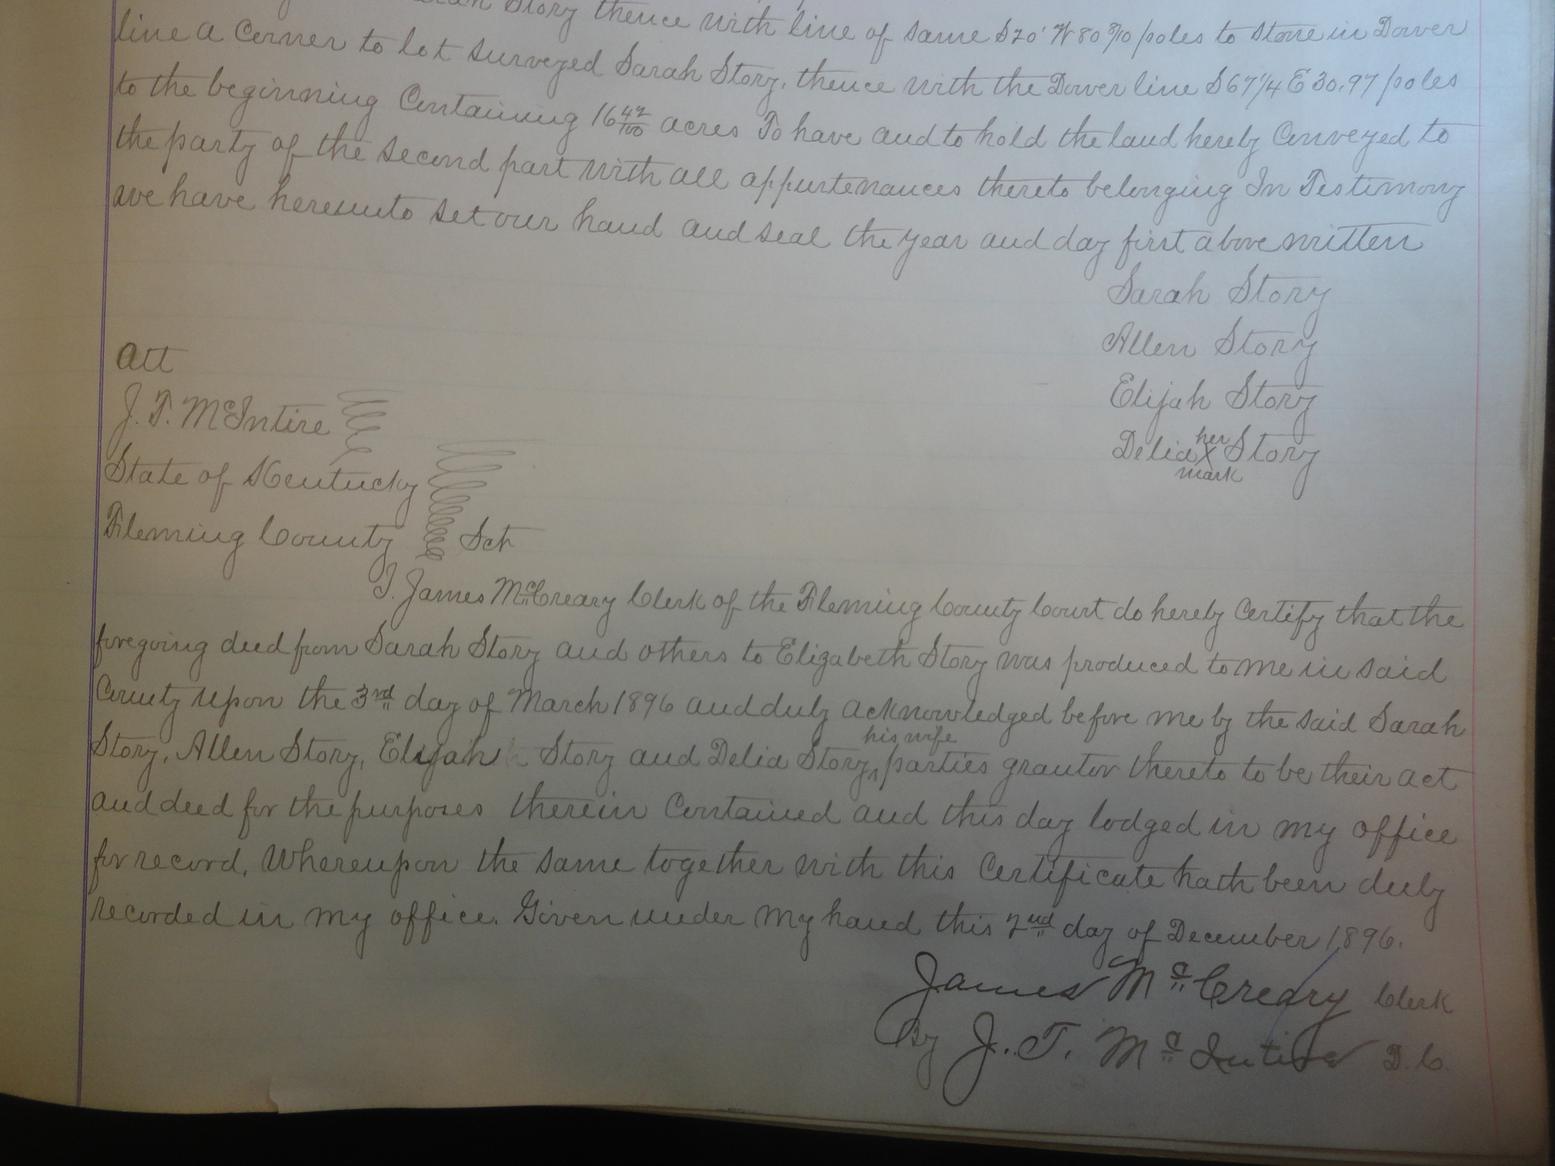 Story thence with line of same S 20° W 80 8/10 poles to stone in Dower
line a Corner to lot surveyed Sarah Story, thence with the Dower line S 67 1/4 E 30.97 poles
to the beginning Containing 16 42/100 acres To have and to hold the land hereby Conveyed to
the party of the second part with all appurtenances thereto belonging In Testimony
we have hereunto set our hand and seal the year and day first above written
Sarah Story
Allen Story
Elijah Story
Delia her X mark Story
Att
J. T. McIntire
State of Kentucky
Fleming County Sct
I, James McCreary Clerk of the Fleming County Court do hereby Certify that the
foregoing deed from Sarah Story and others to Elizabeth Story was produced to me in said
County upon the 3rd day of March 1896 and duly acknowledged before me by the said Sarah
Story, Allen Story, Elijah Story and Delia Story, his wife parties grantor thereto to be their act
and deed for the purposes therein Contained and this day lodged in my office
for record, Whereupon the same together with this Certificate hath been duly
recorded in my office. Given under my hand this 2nd day of December 1896.
James McCreary Clerk
By J. T. McIntire D.C.